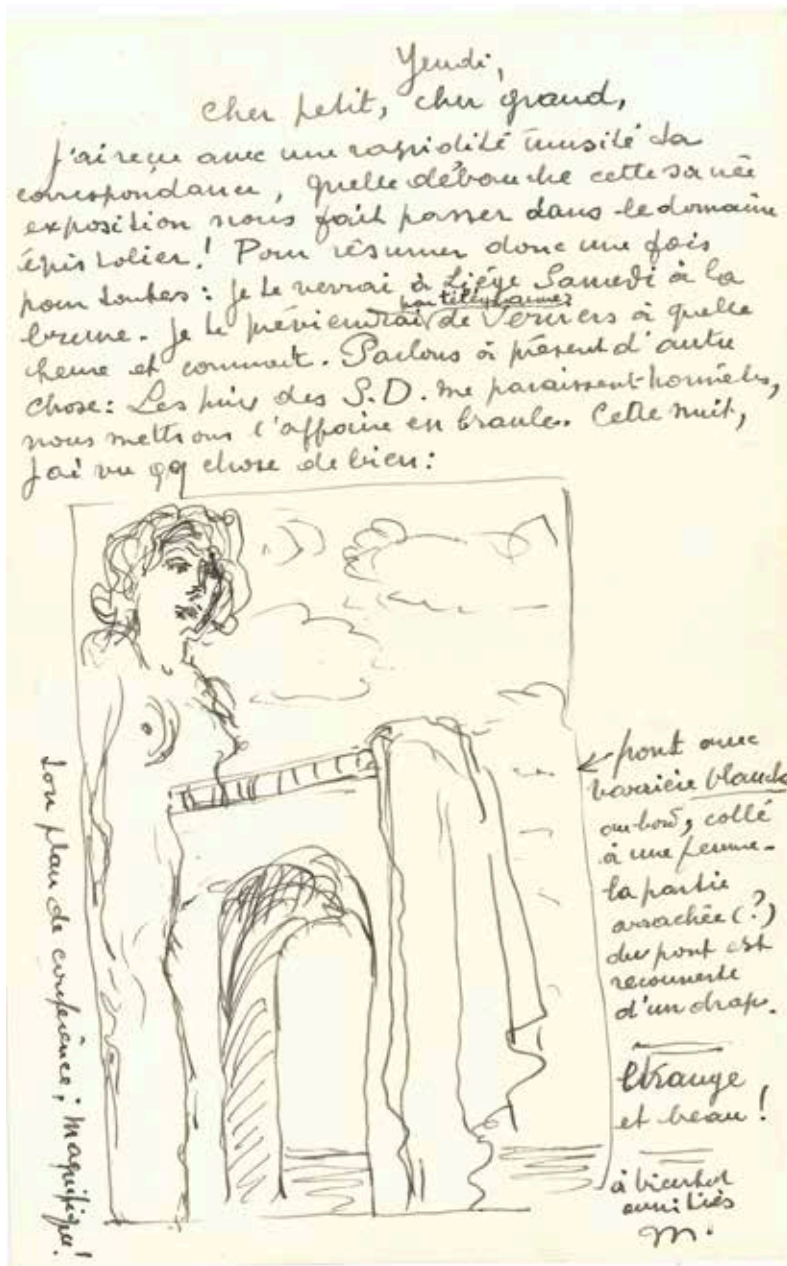 Yeudi,
cher petit, cher grand,
J'ai reçu avec une rapidité inusité ta
correspondance, quelle débauche cette sacrée
exposition nous fait passer dans le domaine
épistolier! Pour résumer donc une fois
pour toutes: je te verrai à Liége Samedi à la
brune. Je te préviendrai par télégramme de Verviers à quelle
heure et comment. Parlons à présent d'autre
chose: Les prix des S.D. me paraissent honnêtes,
nous mettrons l'affaire en branle. Cette nuit,
j'ai vu qq chose de bien:
pont avec
barrière blanche
au bord, collé
à une femme-
la partie
arrachée (?)
du pont est
recouverte
d'un drap.
Etrange
et beau!
à bientôt
amitiés
M.
ton plan de conférence; magnifique!